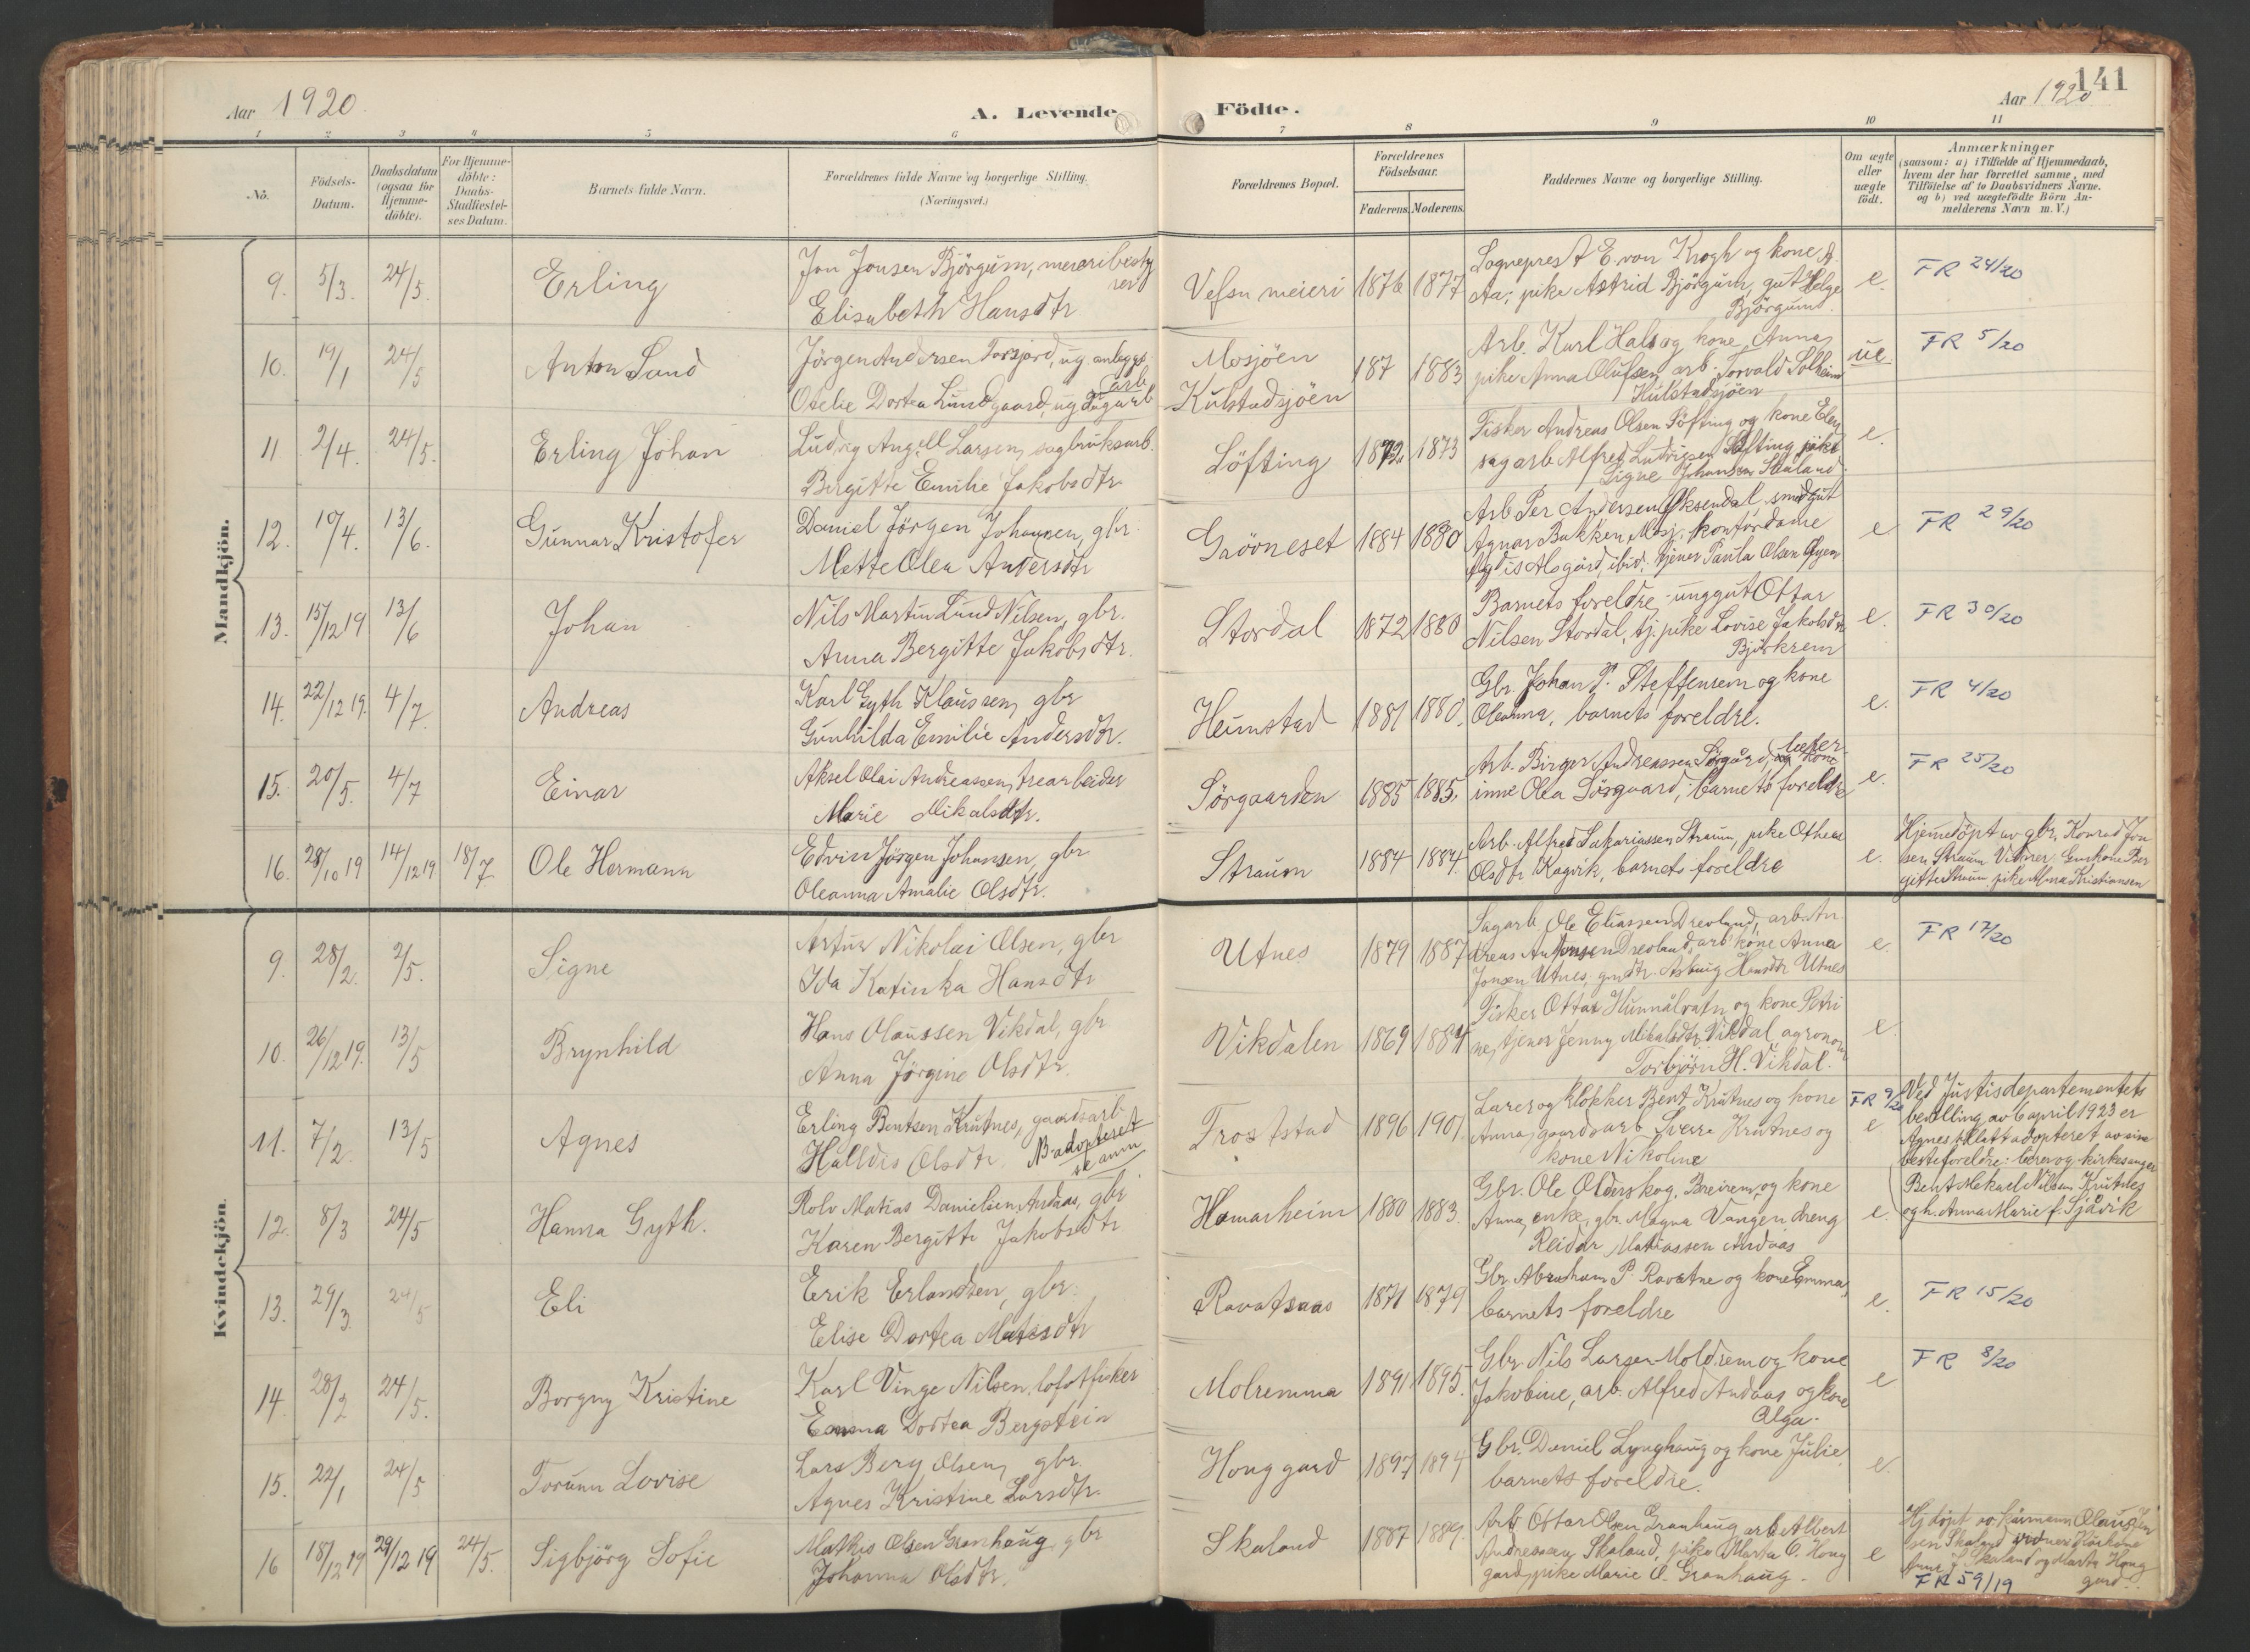 Aar 1920.
A. Levende
Födte.
Aar 1920
141
1 2 3 4 5 6 7 8 9 10 11
No.
Födsels-
Datum.
Daabsdatum
(ogsaa for
Hjemme-
döbte).
For Hjemme-
döbte:
Daabs-
Stadfæstel-
ses Datum.
Barnets fulde Navn.
Forældrenes fulde Navne og borgerlige Stilling.
(Næringsvei.)
Forældrenes Bopæl.
Forældrenes
Födselsaar.
Faderens. Moderens.
Faddernes Navne og borgerlige Stilling.
Om ægte
eller
uægte
födt.
Anmærkninger
(saasom: a) i Tilfælde af Hjemmedaab,
hvem der har forrettet samme, med
Tilföielse af to Daabsvidners Navne.
og b) ved uægtefödte Börn An-
melderens Navn m. V.)
Mandkjön.
9. 5/3. 24/5. Erling
Jon Jonsen Björgum, meieribesty
rer
Elisabeth Hansdtr
Vefsn meieri 1876 1877
Sogneprest E. von Krogh og kone A.
Aa; pike Astrid Björgum, gut Helge
Björgum.
e. FR 24/20
10. 19/1 24/5 Anton Sund
Jörgen Andersen Forsjord, ug. anleggs
arb
Otelie Dortea Lundgaard, ug
Mosjöen
Kulstadsjöen
187 1883
Arb. Karl Hals og kone Anna,
pike Anna Olufsen, arb. Torvald Solheim
Kulstadsjöen
ue. FR 5/20
11. 2/4. 24/5. Erling Johan
Ludvig Angell Larsen, sagbruksarb.
Birgitte Emilie Jakobsdtr.
Löfting 1872 1873
Fisker Andreas Olsen Löfting og kone Elen
sagarb Alfred Ludvigsen Löfting, pike
Signe Johansen Skaland.
e.
12. 10/4. 13/6. Gunnar Kristofer
Daniel Jörgen Johansen, gbr.
Mette Olea Andersdtr
Graövneset 1884 1880
Arb. Per Andersen Oksendal, smedgut
Agnar Bakken, Mosj, kontordame
Alsgård, ibid, tjener Paula Olsen Öyen
e FR 29/20
13. 15/12 19 13/6 Johan
Nils Martin Lund Nilsen, gbr.
Anna Bergitte Jakobsdtr.
Stordal 1872 1880
Barnets foreldre, unggut Ottar
Nilsen Stordal, tj. pike Lovise Jakobsdtr
Björkrem
e. FR 30/20
14. 22/12 19. 4/7. Andreas
Karl Gyth Klaussen, gbr
Gunhilda Emilie Andersdtr.
Heimstad 1881 1880.
Gbr. Johan P. Steffensen og kone
Oleanna, barnets foreldre.
e. FR 4/20
15. 20/5. 4/7 Einar
Aksel Olai Andreassen, trearbeider
Marie Mikalsdtr.
Sörgaarden 1885 1885.
Arb. Birger Andreassen Sörgård, lærer
inne Olea Sörgaard, barnets foreldre
e. FR 25/20
16. 28/10 19 14/12 19 18/7 Ole Hermann
Edvin Jörgen Johansen, gbr
Oleanna Amalie Olsdtr.
Straum 1884 1884.
Arb. Alfred Sakariassen Straum, pike Othea
Olsdtr Kagvik, barnets foreldre
e.
Hjemmedöpt av gbr. Konrad Jon
sen Straum Vitner: Gmkone Ber
gitte Straum, pike Alma Kristiansen
Kvindekjön.
9. 28/2. 2/5. Signe
Artur Nikolai Olsen, gbr
Ida Katinka Hansdtr
Utnes 1879 1887
Sagarb Ole Eliassen Drevland, arb. An
dreas Antonsen Drevland, arb kone Anna
Jonsen Utnes, gmdtr. Aslaug Hansdtr Utnes
e. FR 17/20
10. 26/12 19. 13/5 Brynhild
Hans Olaussen Vikdal, gbr
Anna Jörgine Olsdtr.
Vikdalen 1869 1884
Fisker Ottar Hunnålvatn og kone Petri
ne, tjener Jenny Mikalsdtr. Vikdal, agronom
Torbjörn H. Vikdal.
e
11. 7/2. 13/5 Agnes
Erling Bentsen Krutnes, gaardsarb.
Halldis Olsdtr. NB adopteret
se anm
Trostad 1896 1901
Lærer og klokker Bent Krutnes og kone
Anna, gaardsarb Sverre Krutnes og
kone Nikoline
FR 9/20
e
Ved Justisdepartementets
bevilling av 6 april 1923 er
Agnes tillatt adopteret av sine
besteforeldre: lærer og kirkesanger
Bent Mekael Nilssen Krutnes
og h. Anna Marie f. Sjåvik
12. 8/3 24/5 Hanna Gyth.
Rolv Matias Danielsen Andaas, gbr
Karen Bergitte Jakobsdtr
Hamarheim 1880 1883.
Gbr. Ole Olderskog, Breirem, og kone
Anna, enke, gbr. Magna Vangen, dreng
Reidar Matiassen Andaas
e.
13. 29/3. 24/5 Eli
Erik Erlandsen, gbr.
Elise Dortea Matisdtr
Ravatsaas 1871 1879
Gbr. Abraham P. Ravatne og kone Emma,
barnets foreldre
e. FR 15/20
14. 28/2 24/5. Borgny Kristine
Karl Vinge Nilsen, lofotfisker
Emma Dortea Bergstein
Molremma 1891 1895.
Gbr. Nils Larsen Moldrem og kone
Jakobine, arb. Alfred Andaas og kone
Olga.
e FR 8/20
15. 22/1 24/5 Torunn Lovise
Lars Berg Olsen, gbr.
Agnes Kristine Larsdtr.
Honggard 1897 1894
Gbr. Daniel Lynghaug og kone Julie,
barnets foreldre.
e.
16 18/12 19 29/12 19 24/5. Sigbjörg Sofie
Mathis Olsen Granhaug, gbr
Johanna Olsdtr.
Skaland 1887 1889.
Arb Ottar Olsen Granhaug, arb Albert
Andreassen Skaland, pike Marta O. Hong
gard, pike Marie O. Granhaug.
e
Hj. döpt av kårmann Olaus
sen Skaland vitner: Kårkone
Skaland og Marta Hong
gard.
FR 59/19